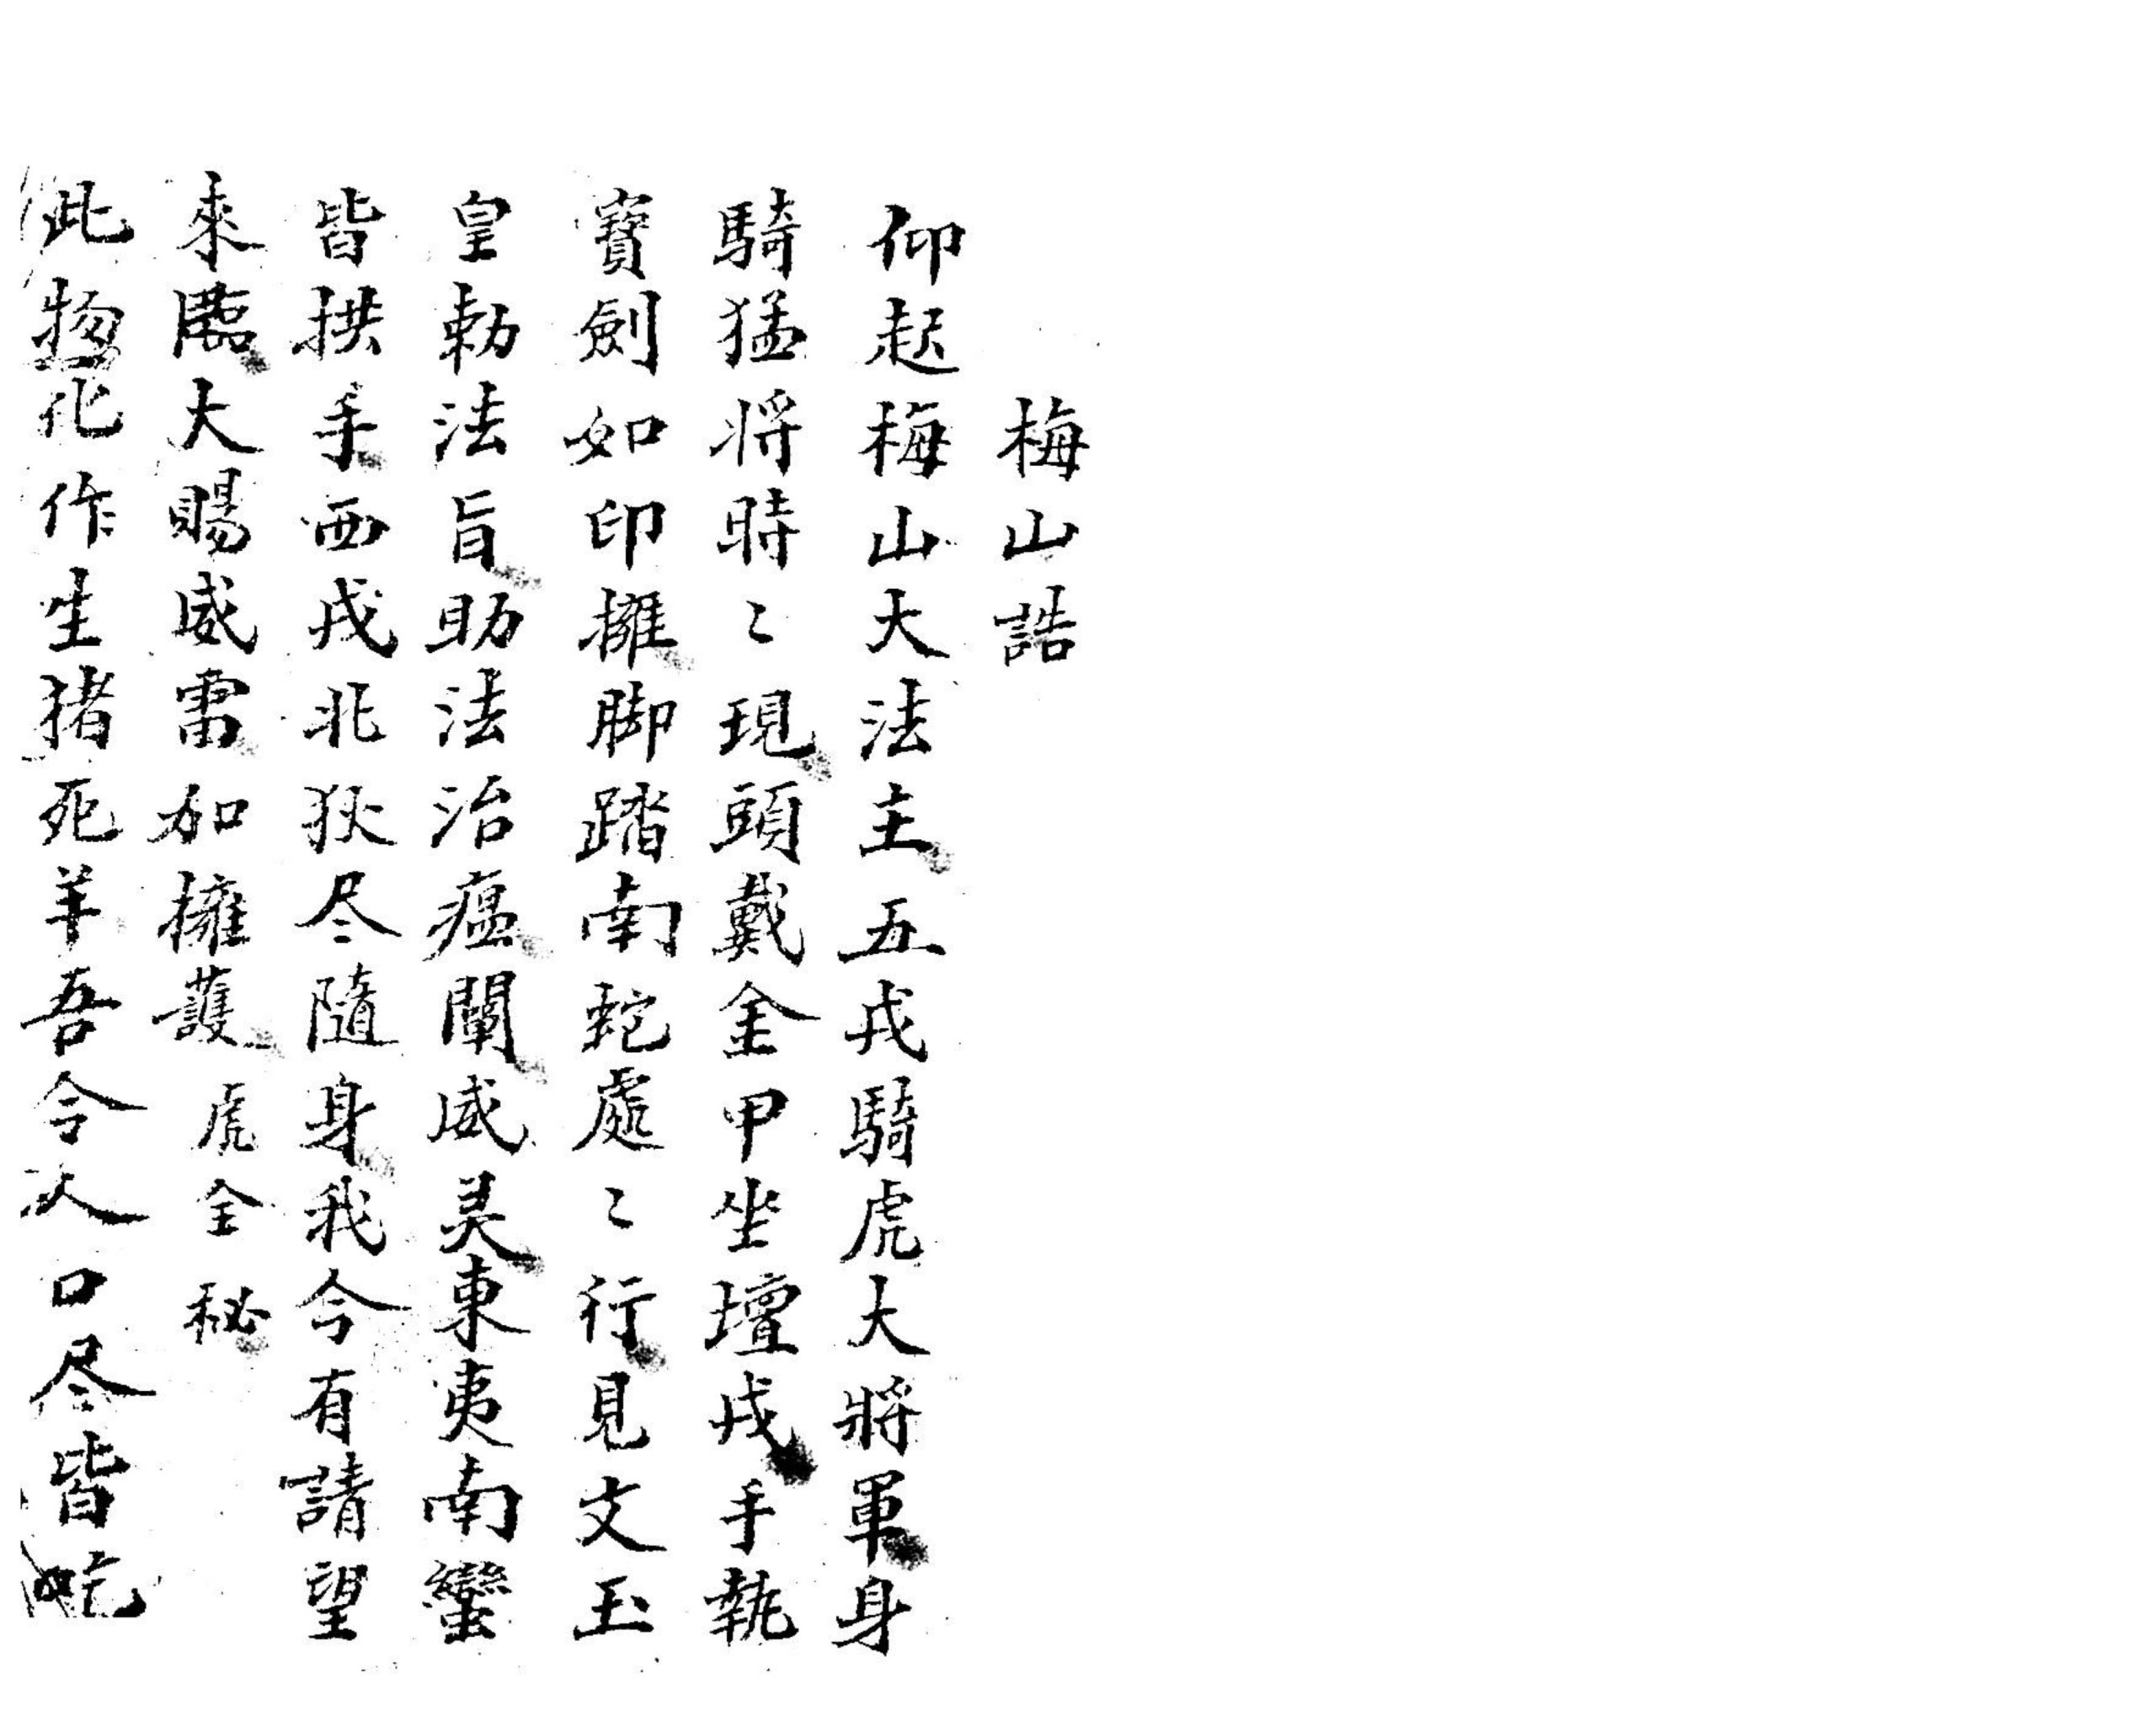 梅山誥
仰起梅山大法主五戎騎虎大將軍身
騎猛将時〻現頭戴金甲坐壇戎手執
寶劍如印擁脚踏南蛇處〻行見文玉
皇勅法旨助法治瘟闡威灵東夷南蠻
皆拱手西戎北狄尽隨身我今有請望
來臨大賜威雷加擁護虎全秘
此物化作生猪死羊吾令次口尽皆吃